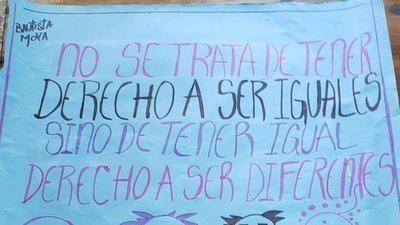 BAUTISTA
MOYA
NO SE TRATA DE TENER
DERECHO A SER IGUALES
SINO DE TENER IGUAL
DERECHO A SER DIFERENTES